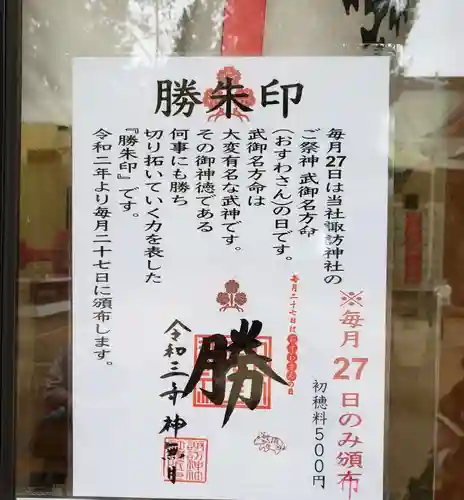 勝朱印
毎月27日は当社諏訪神社の
ご祭神 武御名方命
(おすわさん)の日です。
武御名方命は
大変有名な武神です。
その御神徳である
何事にも勝ち
切り拓いていく力を表した
『勝朱印』です。
令和二年より毎月二十七日に頒布します。
※毎月27日のみ頒布
初穂料500円
毎月二十七日はおすわさんの日
勝
令和三年神無月
諏訪神社